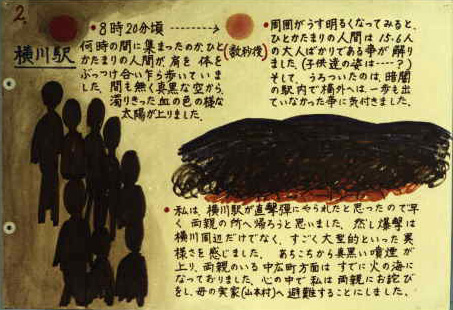 2.
横川駅
●8時20分頃 ------→
何時の間に集まったのか、ひと
かたまりの人間が、肩を 体を
ぶっつけ合い乍ら歩いていま
した。間も無く真黒な空から、
濁りきった血の色の様な
太陽が上りました。
(数秒後)
●周囲がうす明るくなってみると、
ひとかたまりの人間は 15.6人
の大人ばかりである事が解り
ました。(子供達の姿は----?)
そして、うろついたのは、暗闇
の駅内で構外へは、一歩も出
ていなかった事に気付きました。
●私は、横川駅が直撃弾にやられたと思ったので早
く両親の所へ帰ろうと思いました。然し爆撃は
横川周辺だけでなく、すごく大型的といった異
様さを感じました。 あちこちから真黒い噴煙が
上り、両親のいる中広町方面は すでに火の海に
なっておりました。心の中で私は両親にお詫び
をし、母の実家(山本村)へ避難することにしました。